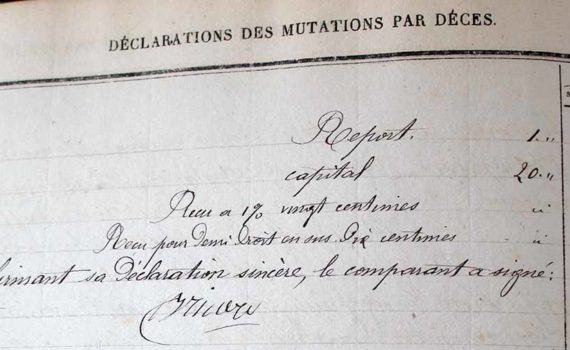 DÉCLARATIONS DES MUTATIONS PAR DÉCES.
Report. 1.,,
capital 20.,,
Recu a 1% vingt centimes ,,
Recu pour demi droit en sus Dix centimes ,,
firmant sa Déclaration sincère, le comparant a signé: